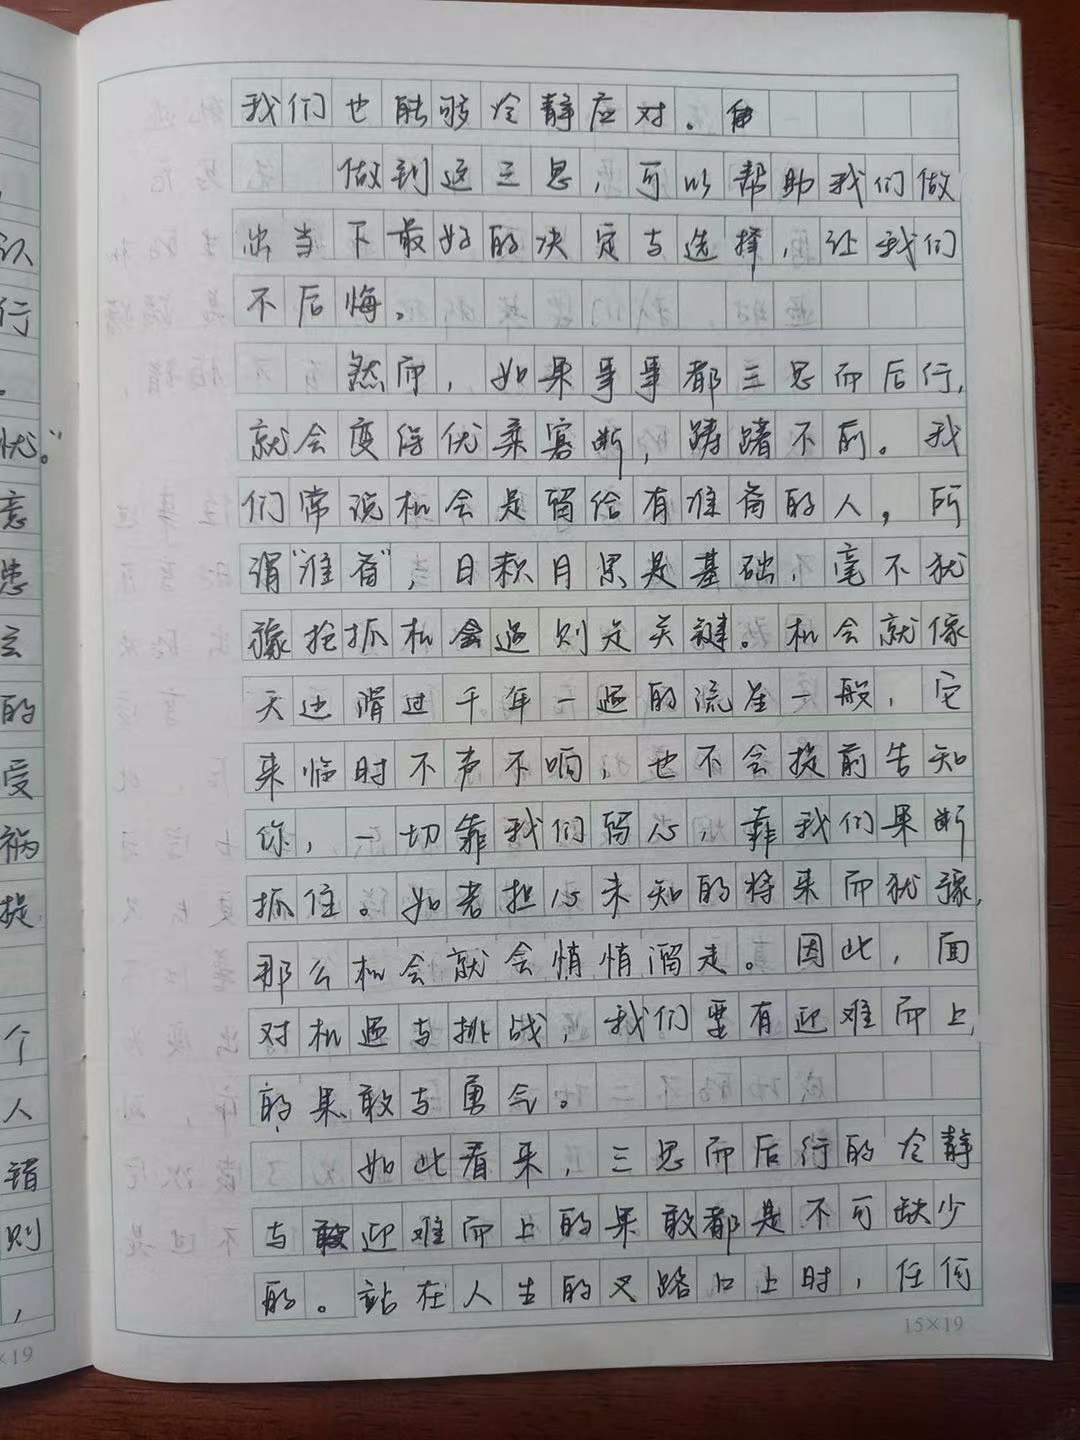 我们也能够冷静应对。
做到这三思，可以帮助我们做
出当下最好的决定与选择，让我们
不后悔。
然而，如果事事都三思而后行，
就会变得优柔寡断，踌躇不前。我
们常说机会是留给有准备的人，所
谓“准备”，日积月累是基础，毫不犹
豫抢抓机会遇则是关键。机会就像
天边滑过千年一遇的流星一般，它
来临时不声不响，也不会提前告知
你，一切靠我们留心，靠我们果断
抓住。如若担心未知的将来而犹豫，
那么机会就会悄悄溜走。因此，面
对机遇与挑战，我们要有迎难而上，
的果敢与勇气。
如此看来，三思而后行的冷静
与敢迎难而上的果敢都是不可缺少
的。站在人生的叉路口上时，任何
15×19
认
行
。
忧。”
意
患
玄
的
受
祸
提
个
人
错
则
，
×19